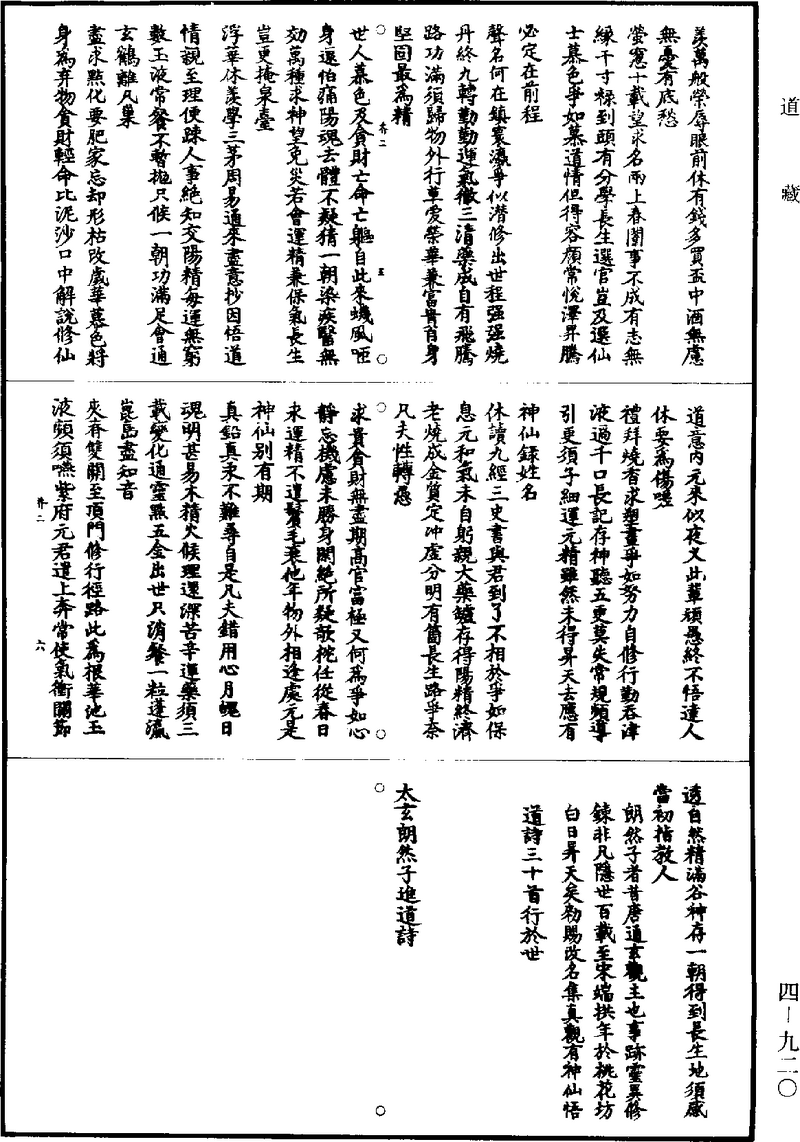 道藏
羨萬般榮辱眼前休有錢多買盃中酒無慮
無憂有底愁
螢窻十載望求名兩上春闈事不成有志無
緣干寸祿到頭有分學長生選官豈及選仙
士慕色爭如慕道情但得容顏常悅澤昇騰
必定在前程
聲名何在鎮寰瀛爭似潛修出世程强强燒
丹終九轉勤勤運氣徹三清藥成自有飛騰
路功滿須歸物外行草愛榮華兼富貴自身
堅固最為精
养二
五
世人慕色及貪財亡命亡軀自此來蟣風咂
身還怕痛陽魂去體不疑猜一朝染疾醫無
効萬種求神望免災若會運精兼保氣長生
豈更掩泉臺
浮華休羨學三茅周易通來盡意抄因悟道
情親至理便踈人事絕知交陽精每運無窮
數玉液常餐不暫拋只候一朝功滿足會通
玄鶴離凡巢
盡求點化要肥家忘却形枯改歲華慕色將
身為弃物貪財輕命比泥沙口中解說修仙
道意内元來似夜叉此輩頑愚終不悟達人
休要為傷嗟
禮拜燒香求塑畫爭如努力自修行勤吞津
液過千口長記存神聽五更莫失常規頻導
引更須子細運元精雖然未得昇天去應有
神仙錄姓名
休讀九經三史書與君到了不相於爭如保
息元和氣未自躬親大藥鑪存得陽精終濟
老燒成金質定冲虛分明有箇長生路爭奈
凡夫性轉愚
求貴貪財無盡期高官富極又何為爭如心
靜忘機慮未勝身閑絕所疑欹枕任從春日
求運精不遣鬢毛衰他年物外相逢處元是
神仙別有期
真鉛真汞不難尋自是凡夫錯用心月魄日
魂明甚易木精火候理還深苦辛運藥須三
載變化通靈點五金出世只消餐一粒蓬瀛
崑島盡知音
夾脊雙關至頂門修行徑路此為根華池玉
液頻須嚥紫府元君遣上奔常使氣衝關節
养二
六
透自然精滿谷神存一朝得到長生地須感
當初指教人
朗然子者昔唐通玄觀主也事跡靈異修
鍊非凡隱世百載至宋端拱年於桃花坊
白日昇天矣勑賜改名集真觀有神仙悟
道詩三十首行於世
太玄朗然子進道詩
四—九二〇